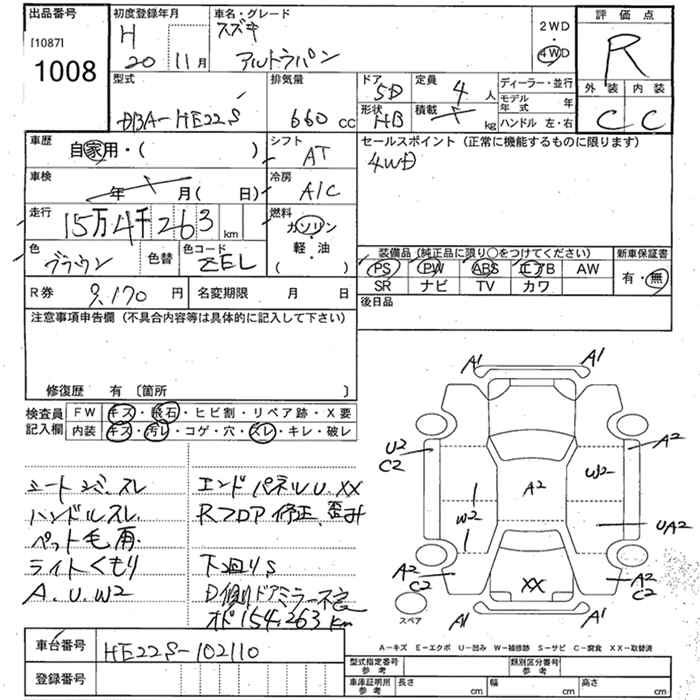 出品番号 初度登録年月 車名・グレード 評価点
[1087] H スズキ 2WD
1008 20 11月 アルトラパン 4WD R
型式 排気量 ドア 5D 定員 4人 ディーラー・並行 外装 内装
モデル年式 年
DBA-HE22S 660cc 形状 HB 積載 kg ハンドル 左・右 C C
車歴 自家用・( ) シフト AT セールスポイント(正常に機能するものに限ります)
4WD
車検 年 月( 日) 冷房 A/C
走行 15万4千263km 燃料 ガソリン・軽・油( )
色 ブラウン 色替 色コード ZEL 装備品(純正品に限り○をつけてください) 新車保証書
PS PW ABS エアB AW 有・無
R券 9,170円 名変期限 月 日 SR ナビ TV カワ
注意事項申告欄(不具合内容等は具体的に記入して下さい) 後日品
修復歴 有 〔箇所 〕
検査員 FW キズ・飛石・ヒビ割・リペア跡・X要
記入欄 内装 キズ・汚レ・コゲ・穴・スレ・キレ・破レ
A1 A1
U2 C2 A2
W2
A2
W2 UA2
A2 C2 A2 C2
XX
スペア A1 A1
シートジバスレ エンドパネルU.XX
ハンドルスレ Rフロア修正、歪み
ペット毛有
ライトくもり 下廻りS
A.U.W2 D側ドアミラー不良
オド154,263km
A-キズ E-エクボ U-凹み W-補修跡 S-サビ C-腐食 XX-取替済
車台番号 HE22S-102110
型式指定番号 参考 類別区分番号 参考
登録番号 車庫証明用 参考 長さ cm 幅 cm 高さ cm